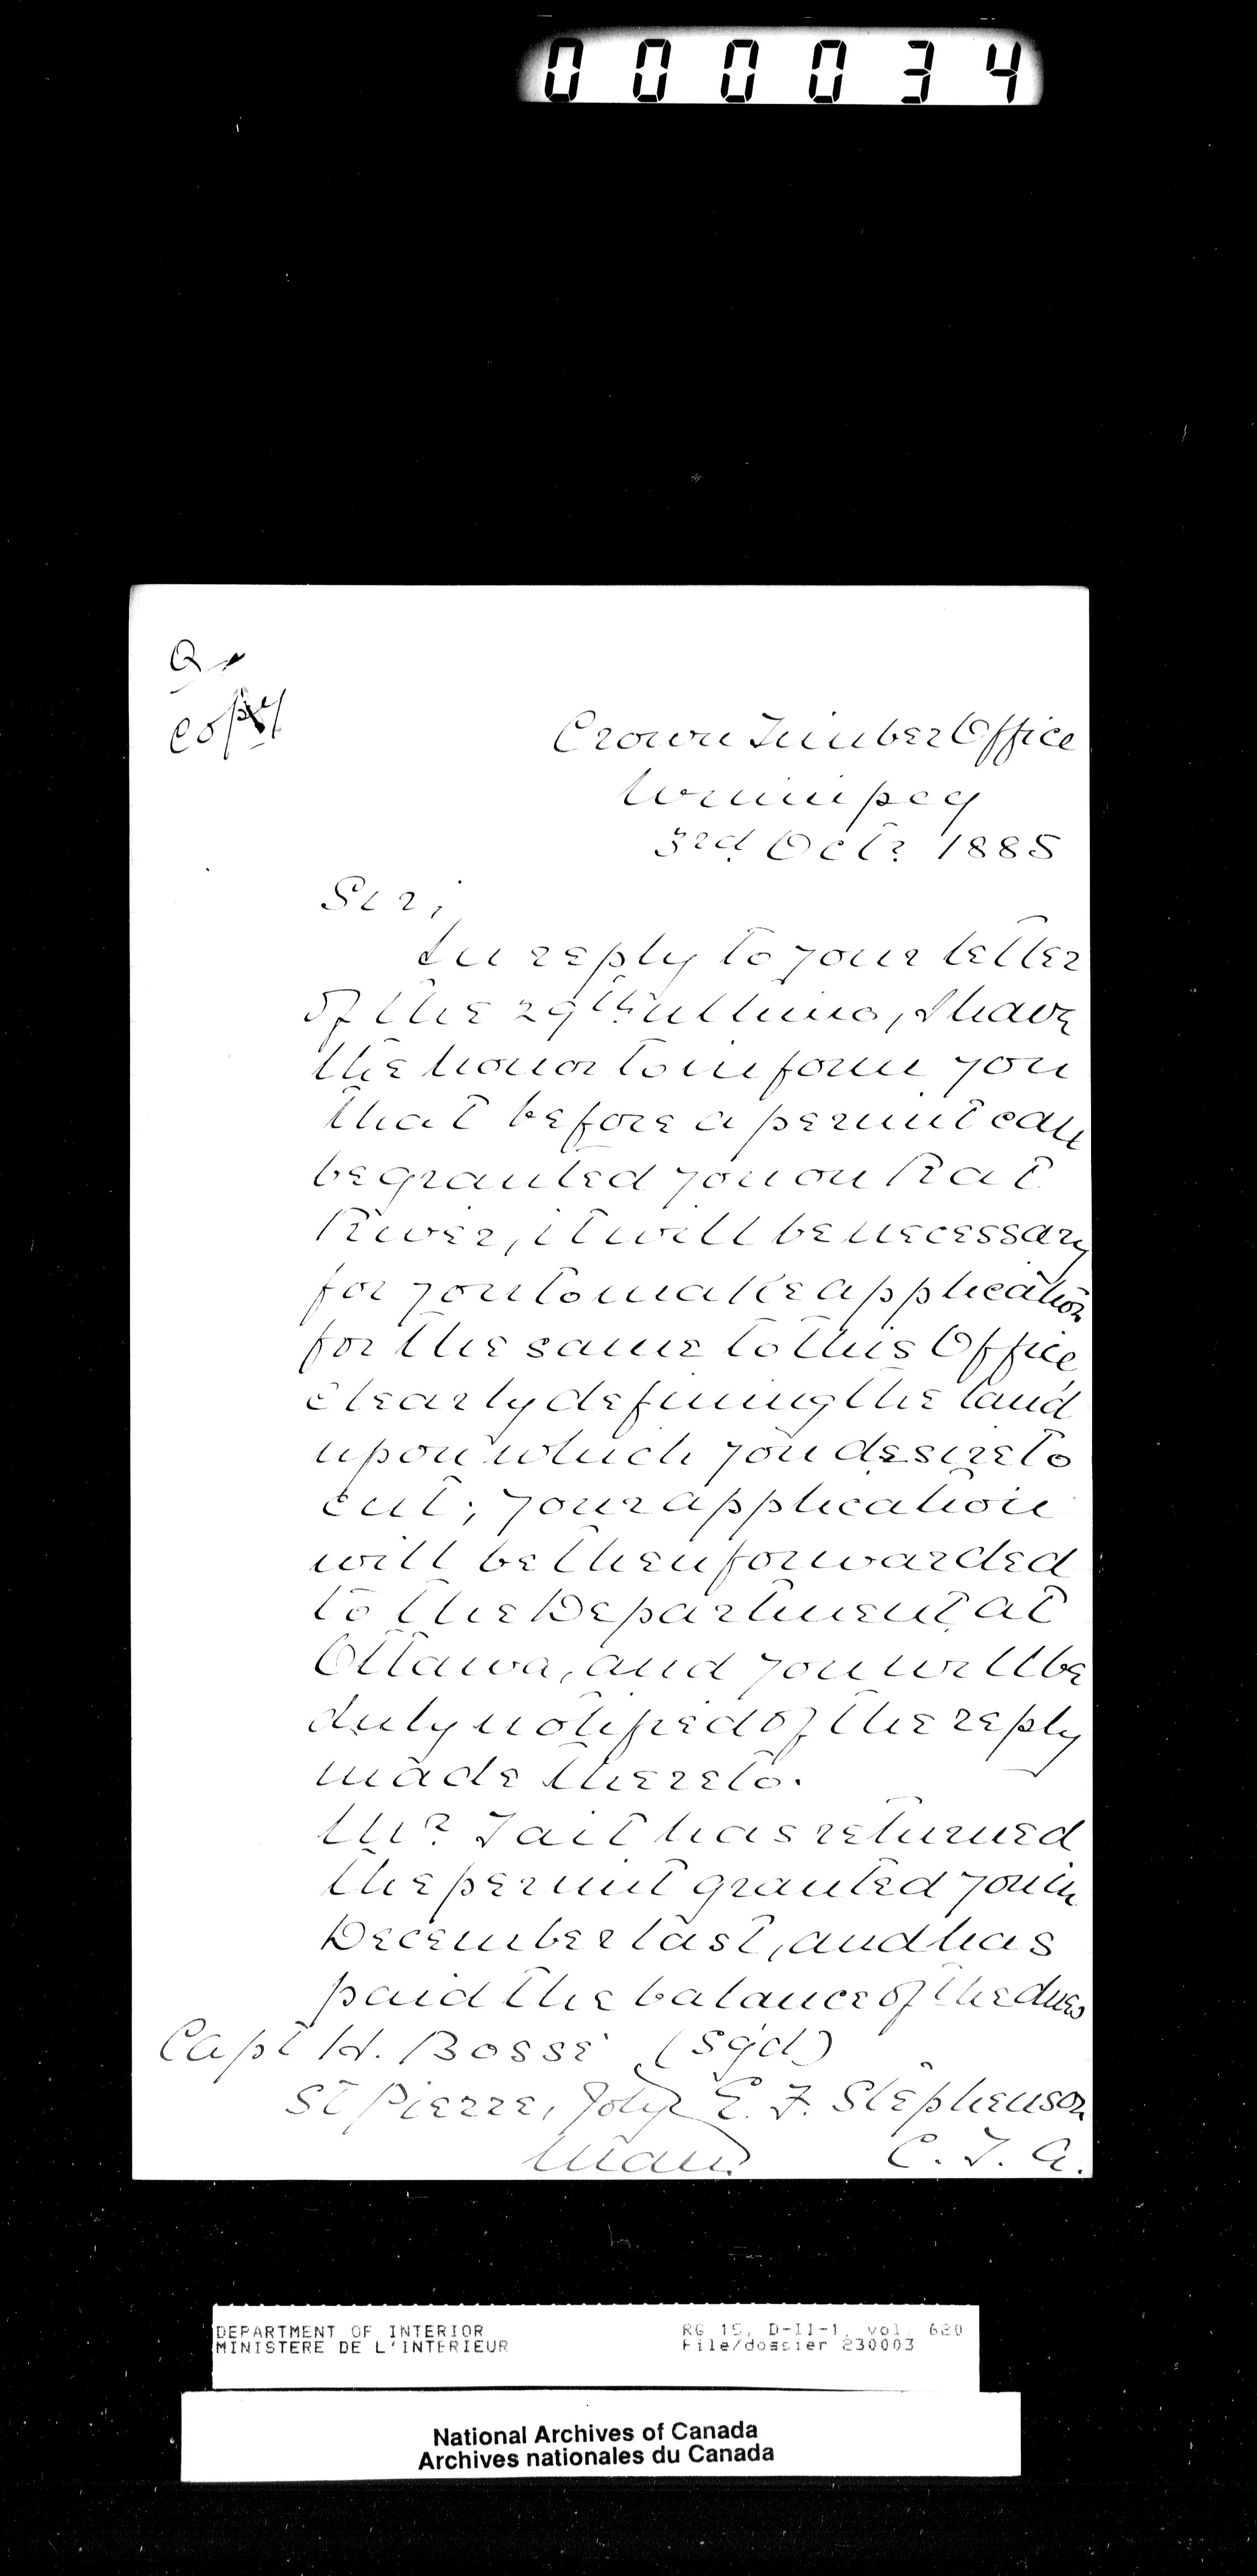 000034
Copy
Crown Timber Office
Winnipeg
3rd. Octr. 1885
Sir,
In reply to your letter
of the 29th ultimo, I have
the honor to inform you
that before a permit can
be granted you on Rat
River, it will be necessary
for you to make application
for the same to this Office,
clearly defining the land
upon which you desire to
cut; your application
will be then forwarded
to the Department at
Ottawa, and you will be
duly notified of the reply
made thereto.
Mr. Tait has returned
the permit granted you in
December last, and has
paid the balance of the dues
Capt H. Bossé (Sg'd)
St Pierre, Joly E. F. Stephenson
Man. C. T. A.
DEPARTMENT OF INTERIOR RG 15, D-II-1, vol. 620
MINISTERE DE L'INTERIEUR File/dossier 230003
National Archives of Canada
Archives nationales du Canada